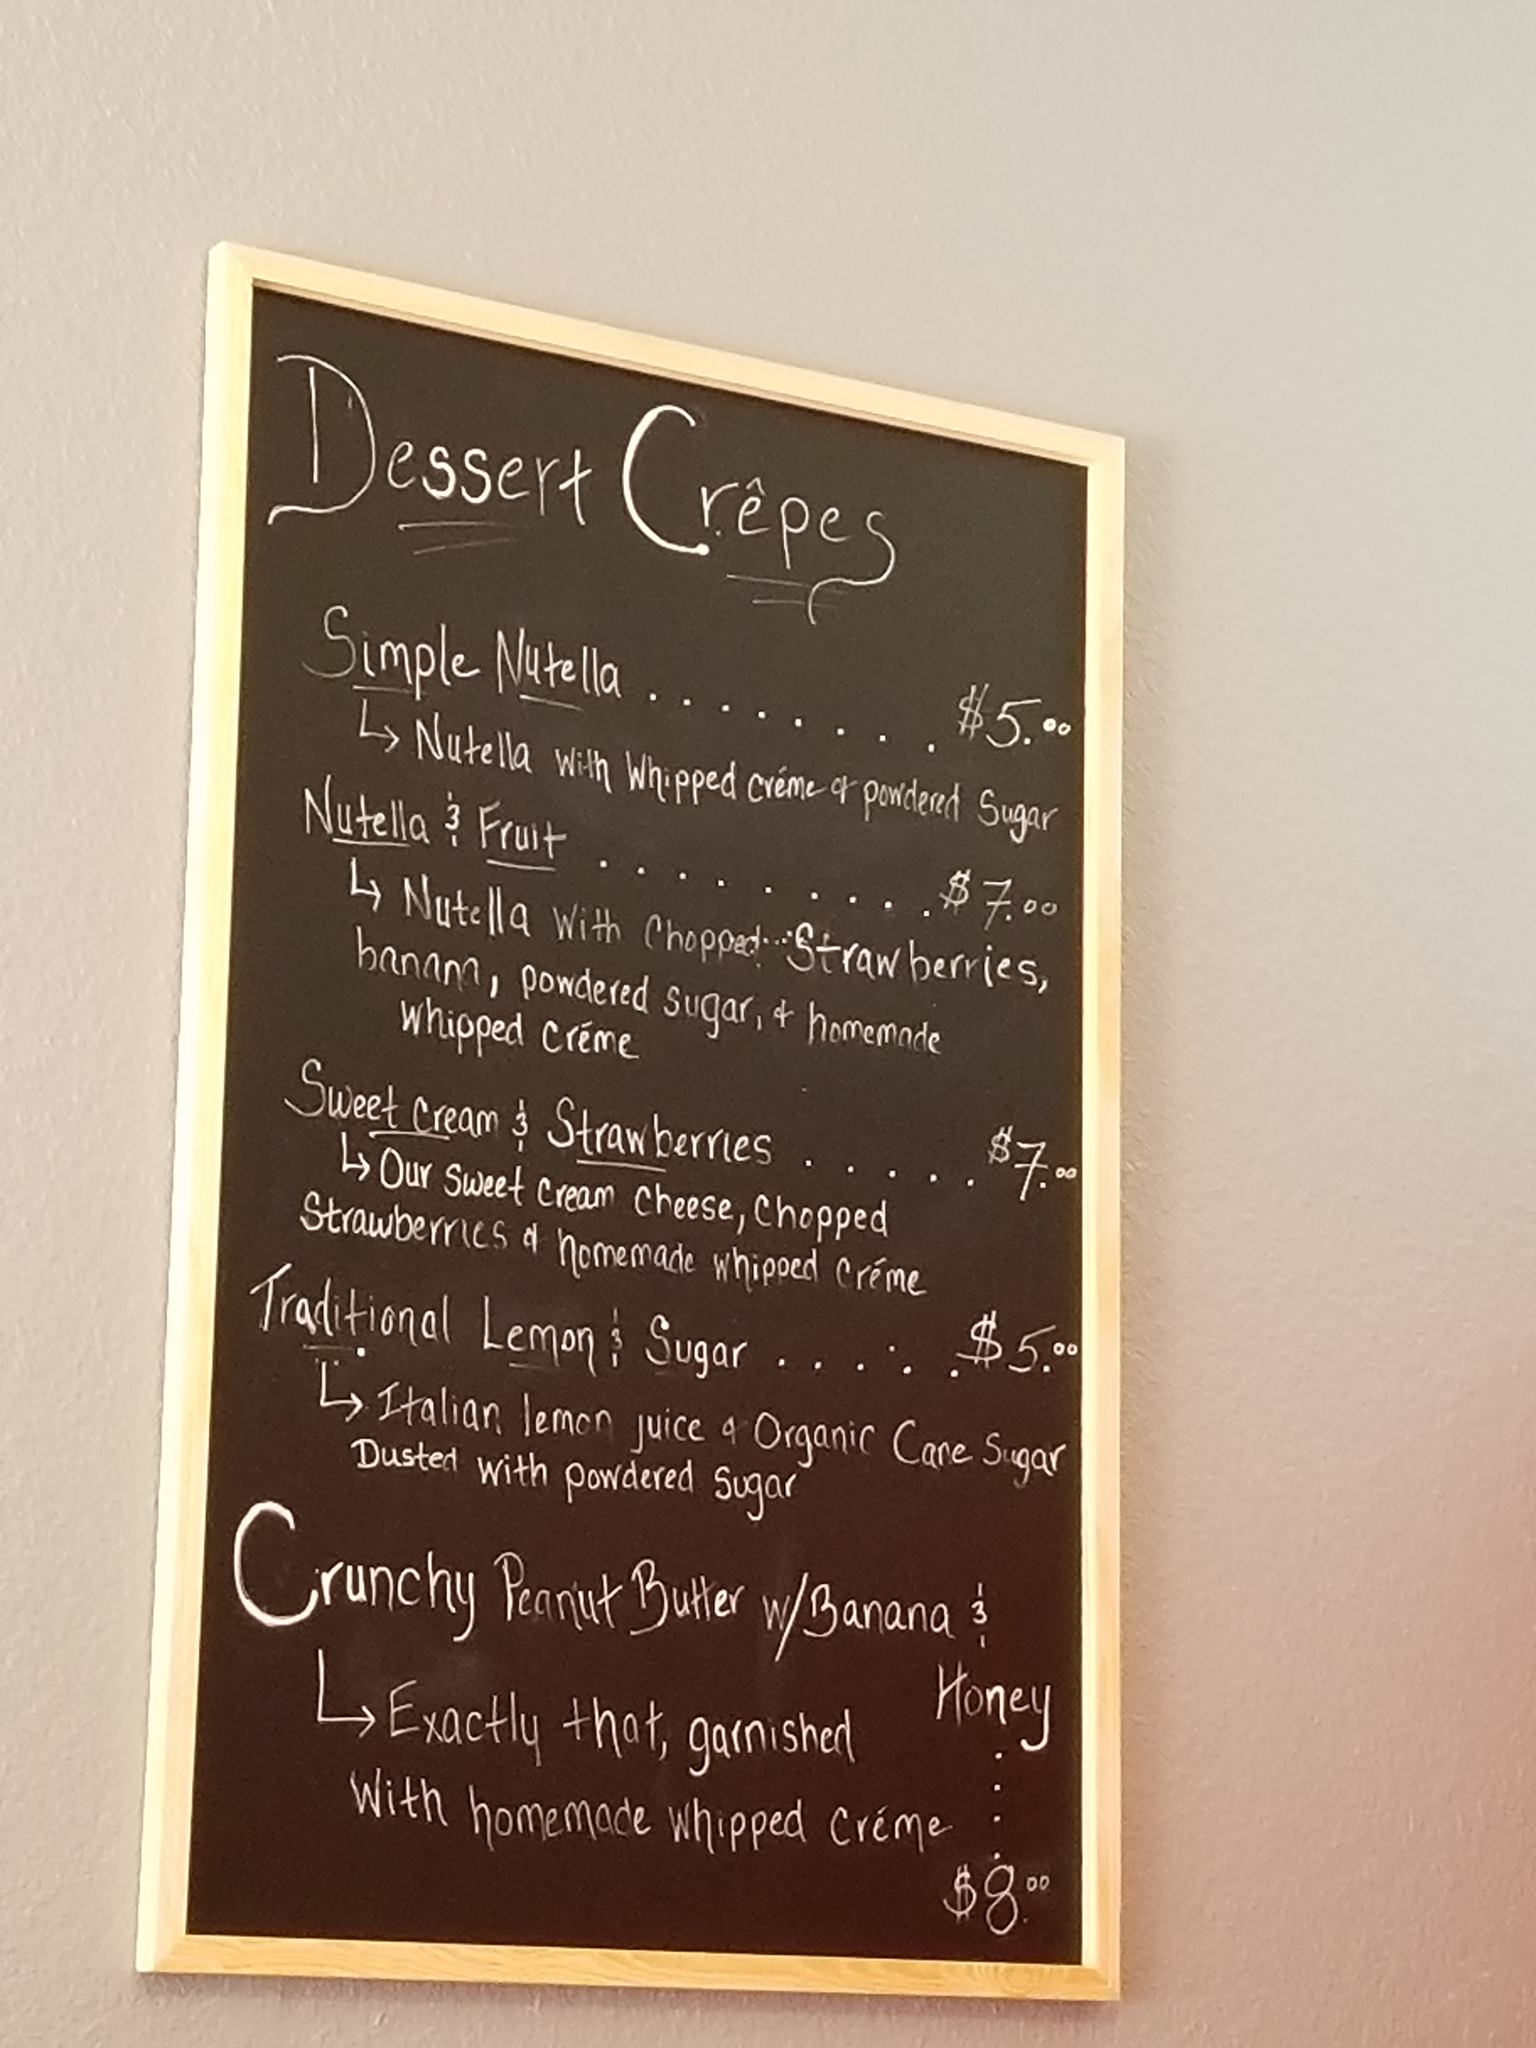 Dessert Crêpes
Simple Nutella . . . . . . . . $5.00
↳ Nutella with Whipped créme & powdered Sugar
Nutella & Fruit . . . . . . . . . $7.00
↳ Nutella With Chopped Strawberries,
banana, powdered sugar, & homemade
whipped créme
Sweet cream & Strawberries . . . . . $7.00
↳ Our sweet cream cheese, chopped
Strawberries & homemade whipped créme
Traditional Lemon & Sugar . . . . . $5.00
↳ Italian lemon juice & Organic Cane Sugar
Dusted with powdered sugar
Crunchy Peanut Butter w/Banana &
Honey
↳ Exactly that, garnished
With homemade whipped créme
. . . .
$8.00